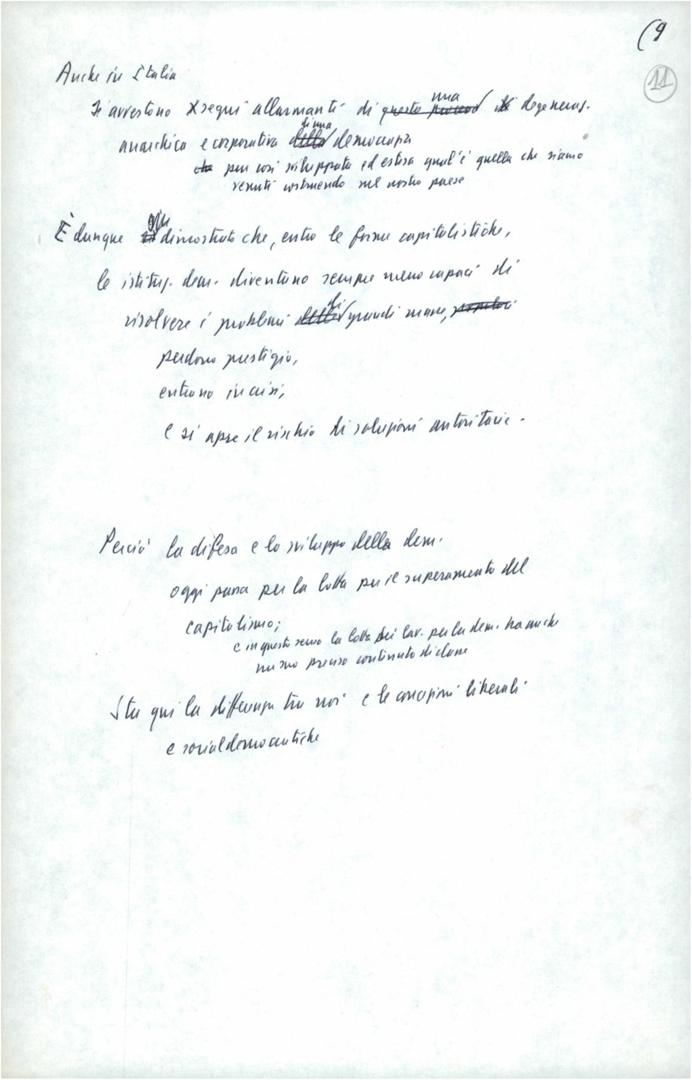 (9
11
Anche in Italia
si avvertono segni allarmanti di questo processo una di degeneraz.
anarchica e corporativa della di una democrazia
che pur così sviluppata ed estesa qual'è quella che siamo
venuti costruendo nel nostro paese
È dunque già dimostrato che, entro le forme capitalistiche,
le istituz. dem. diventano sempre meno capaci di
risolvere i problemi delle di grandi masse, popolari
perdono prestigio,
entrano in crisi,
e si apre il rischio di soluzioni autoritarie.
Perciò la difesa e lo sviluppo della dem.
oggi passa per la lotta per il superamento del
capitalismo;
e in questo senso la lotta dei lav. per la dem. ha anche
un suo preciso contenuto di classe
Sta qui la differenza tra noi e le concezioni liberali
e socialdemocratiche